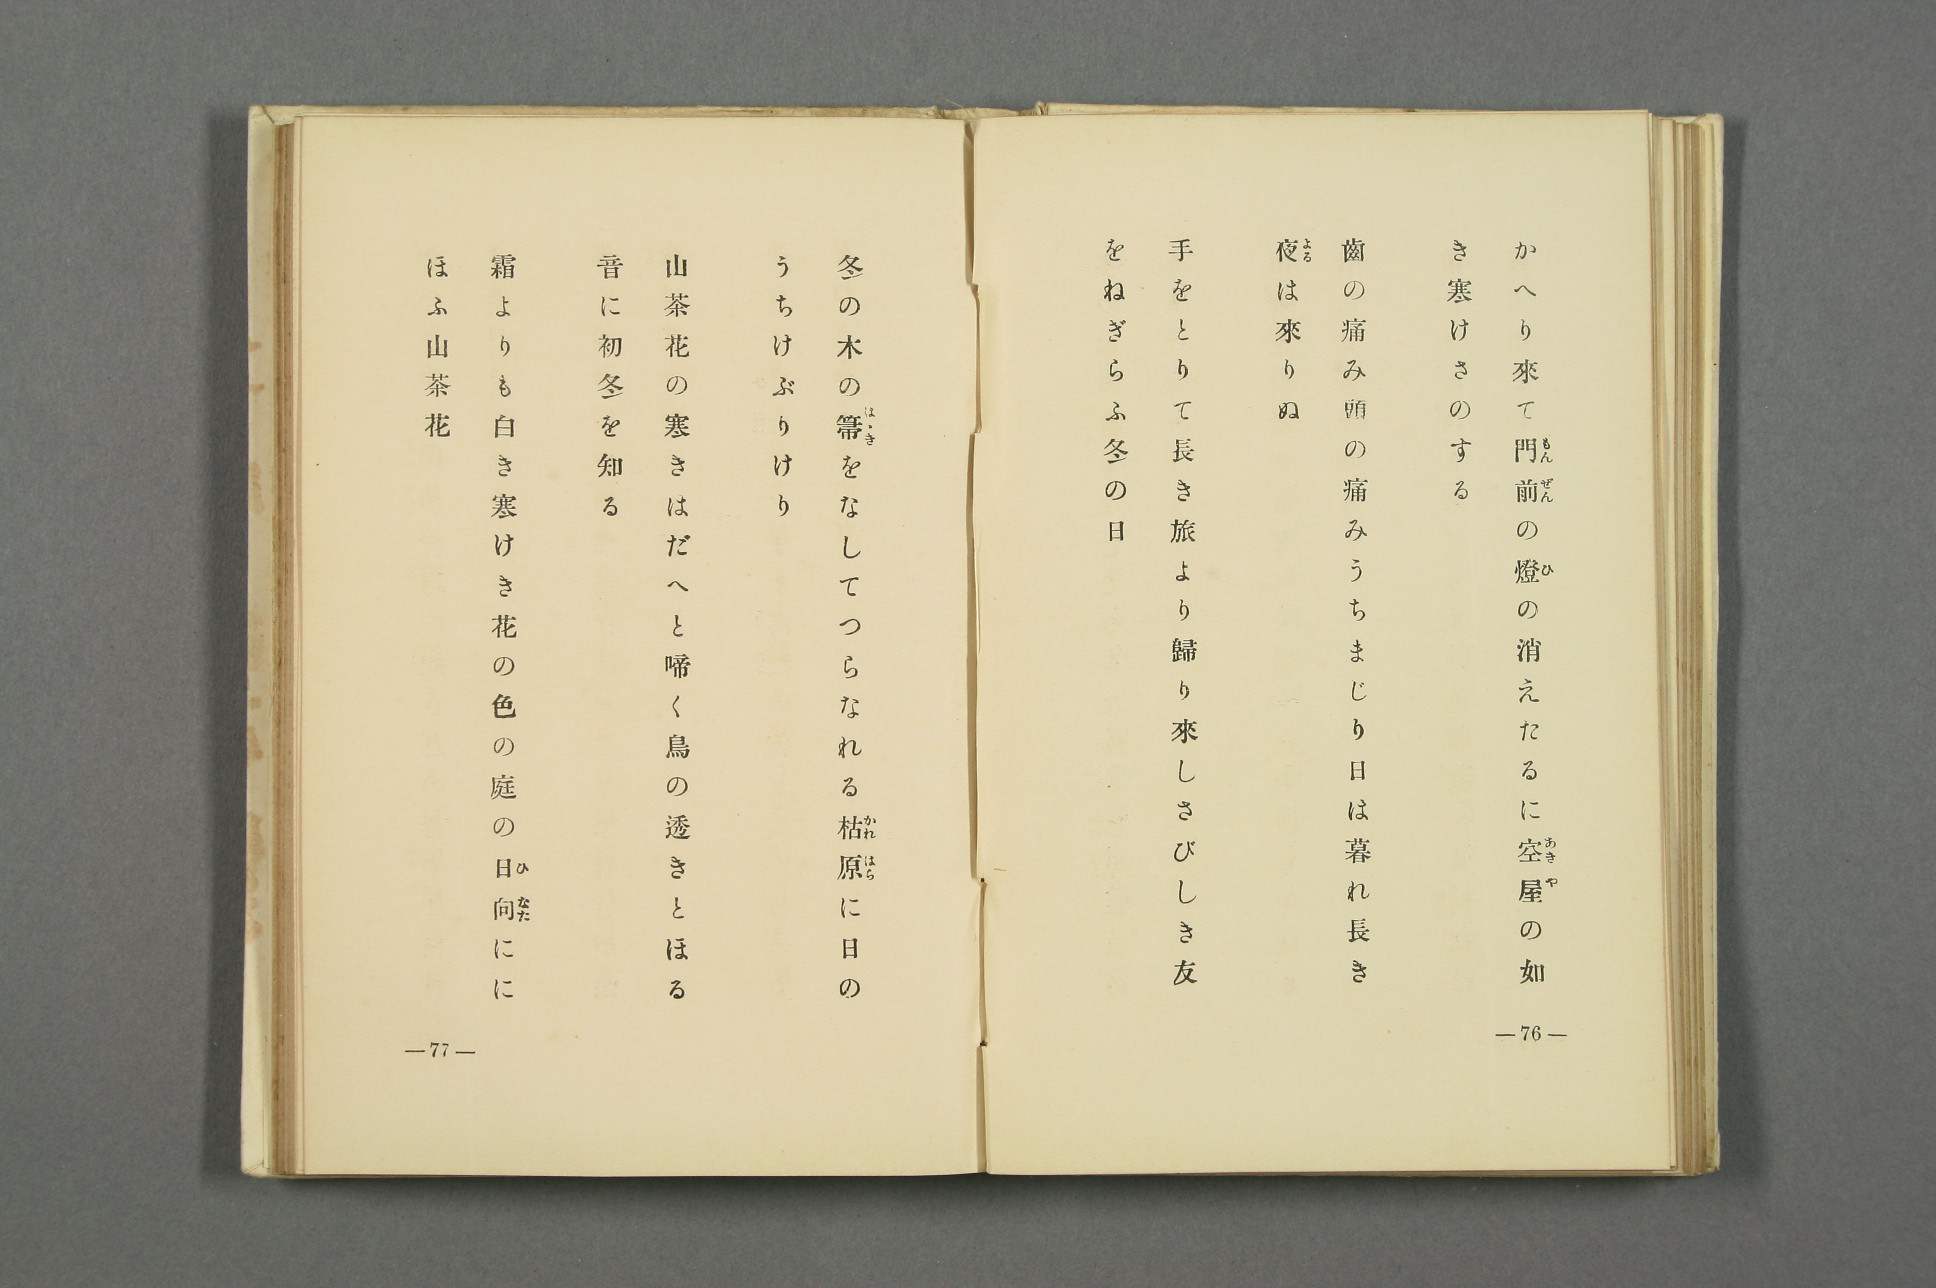 かへり來て門前の燈の消えたるに空屋の如
き寒けさのする
齒の痛み頭の痛みうちまじり日は暮れ長き
夜は來りぬ
手をとりて長き旅より歸り來しさびしき友
をねぎらふ冬の日
—76—
冬の木の箒をなしてつらなれる枯原に日の
うちけぶりけり
山茶花の寒きはだへと啼く鳥の透きとほる
音に初冬を知る
霜よりも白き寒けき花の色の庭の日向にに
ほふ山茶花
—77—